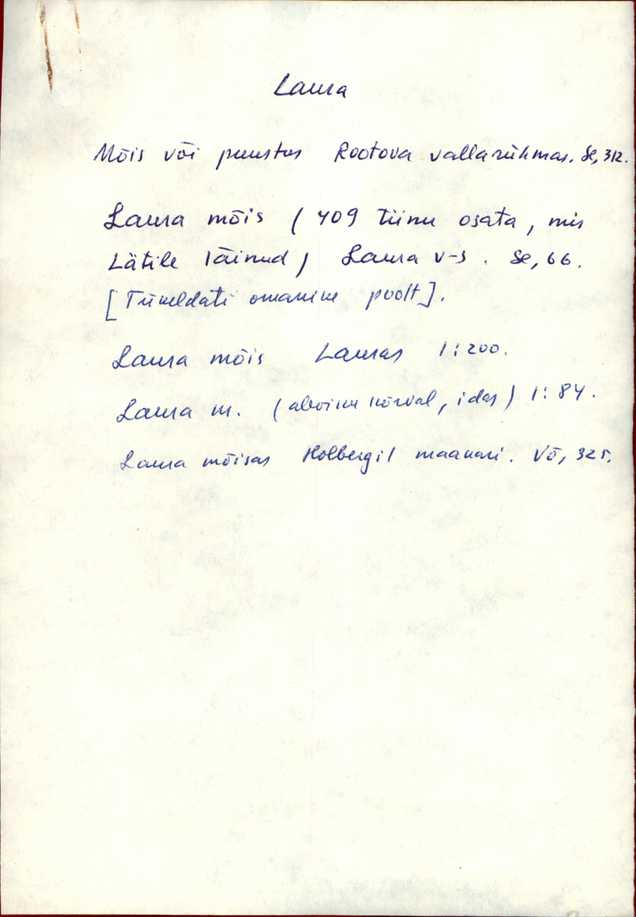 Laura
Mõis või puustus Rootova vallarühmas. Se, 312.
Laura mõis ( 409 tiinu osata, mis
Lätile läinud) Laura v-s. Se, 66.
[Tükeldati omaniku poolt].
Laura mõis Lauras 1:200.
Laura m. ( kõrval, idas) 1:84.
Laura mõisas Holbergil maavari. Võ, 325.